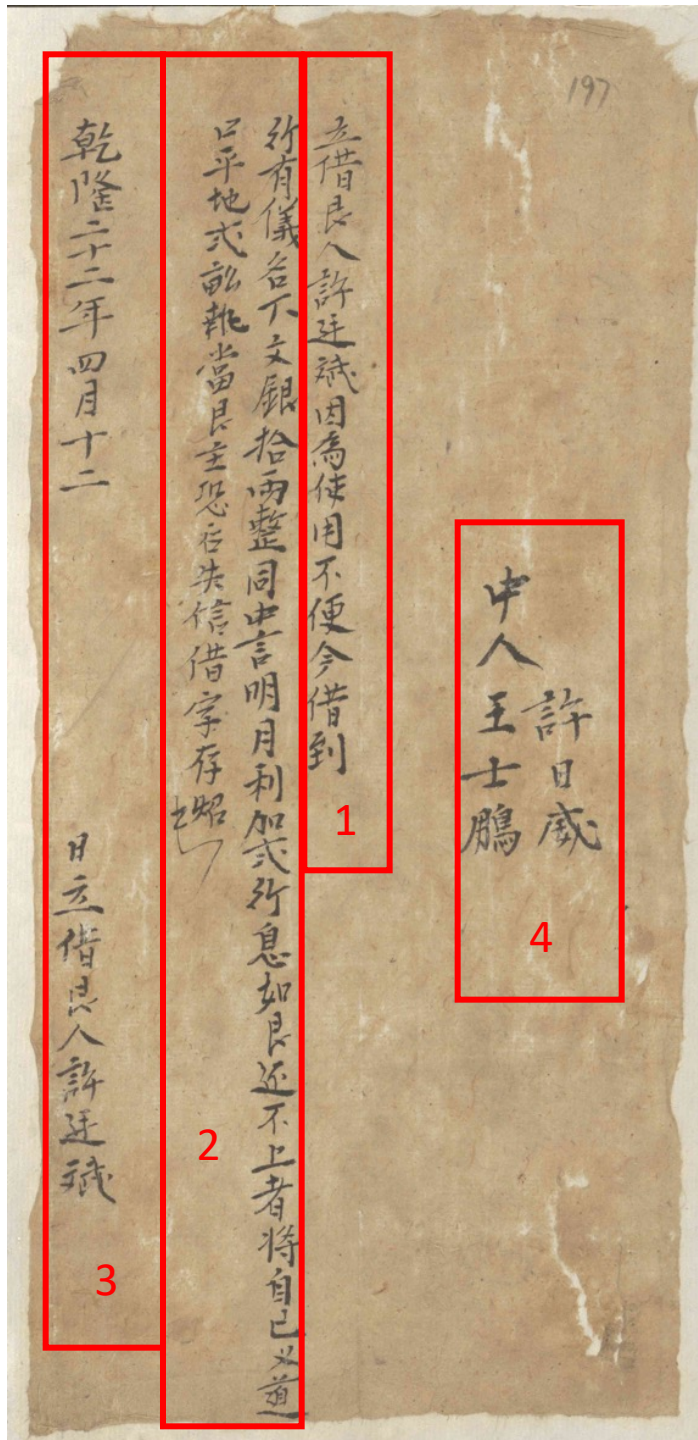 197
立借艮人許廷斌因為使用不便今借到
許有儀名下文銀拾両整同中言明月利加弍行息如艮还不上者将自己义道
口平地弍畝執當艮主恐后失信借字存照
乾隆二十二年四月十二 日立借艮人許廷斌
中人 許日威
王士鵬
1
2
3
4